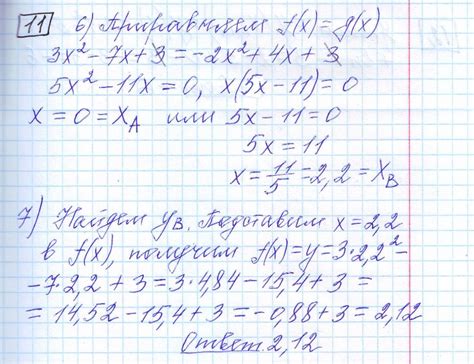 11 6) Приравняем f(x) = g(x)
3x² - 7x + 3 = -2x² + 4x + 3
5x² - 11x = 0, x(5x - 11) = 0
x = 0 = x_A или 5x - 11 = 0
5x = 11
x = 11/5 = 2,2 = x_B
7) Найдем y_B. Подставим x = 2,2
в f(x), получим f(x) = y = 3·2,2² -
- 7·2,2 + 3 = 3·4,84 - 15,4 + 3 =
= 14,52 - 15,4 + 3 = -0,88 + 3 = 2,12
Ответ. 2,12